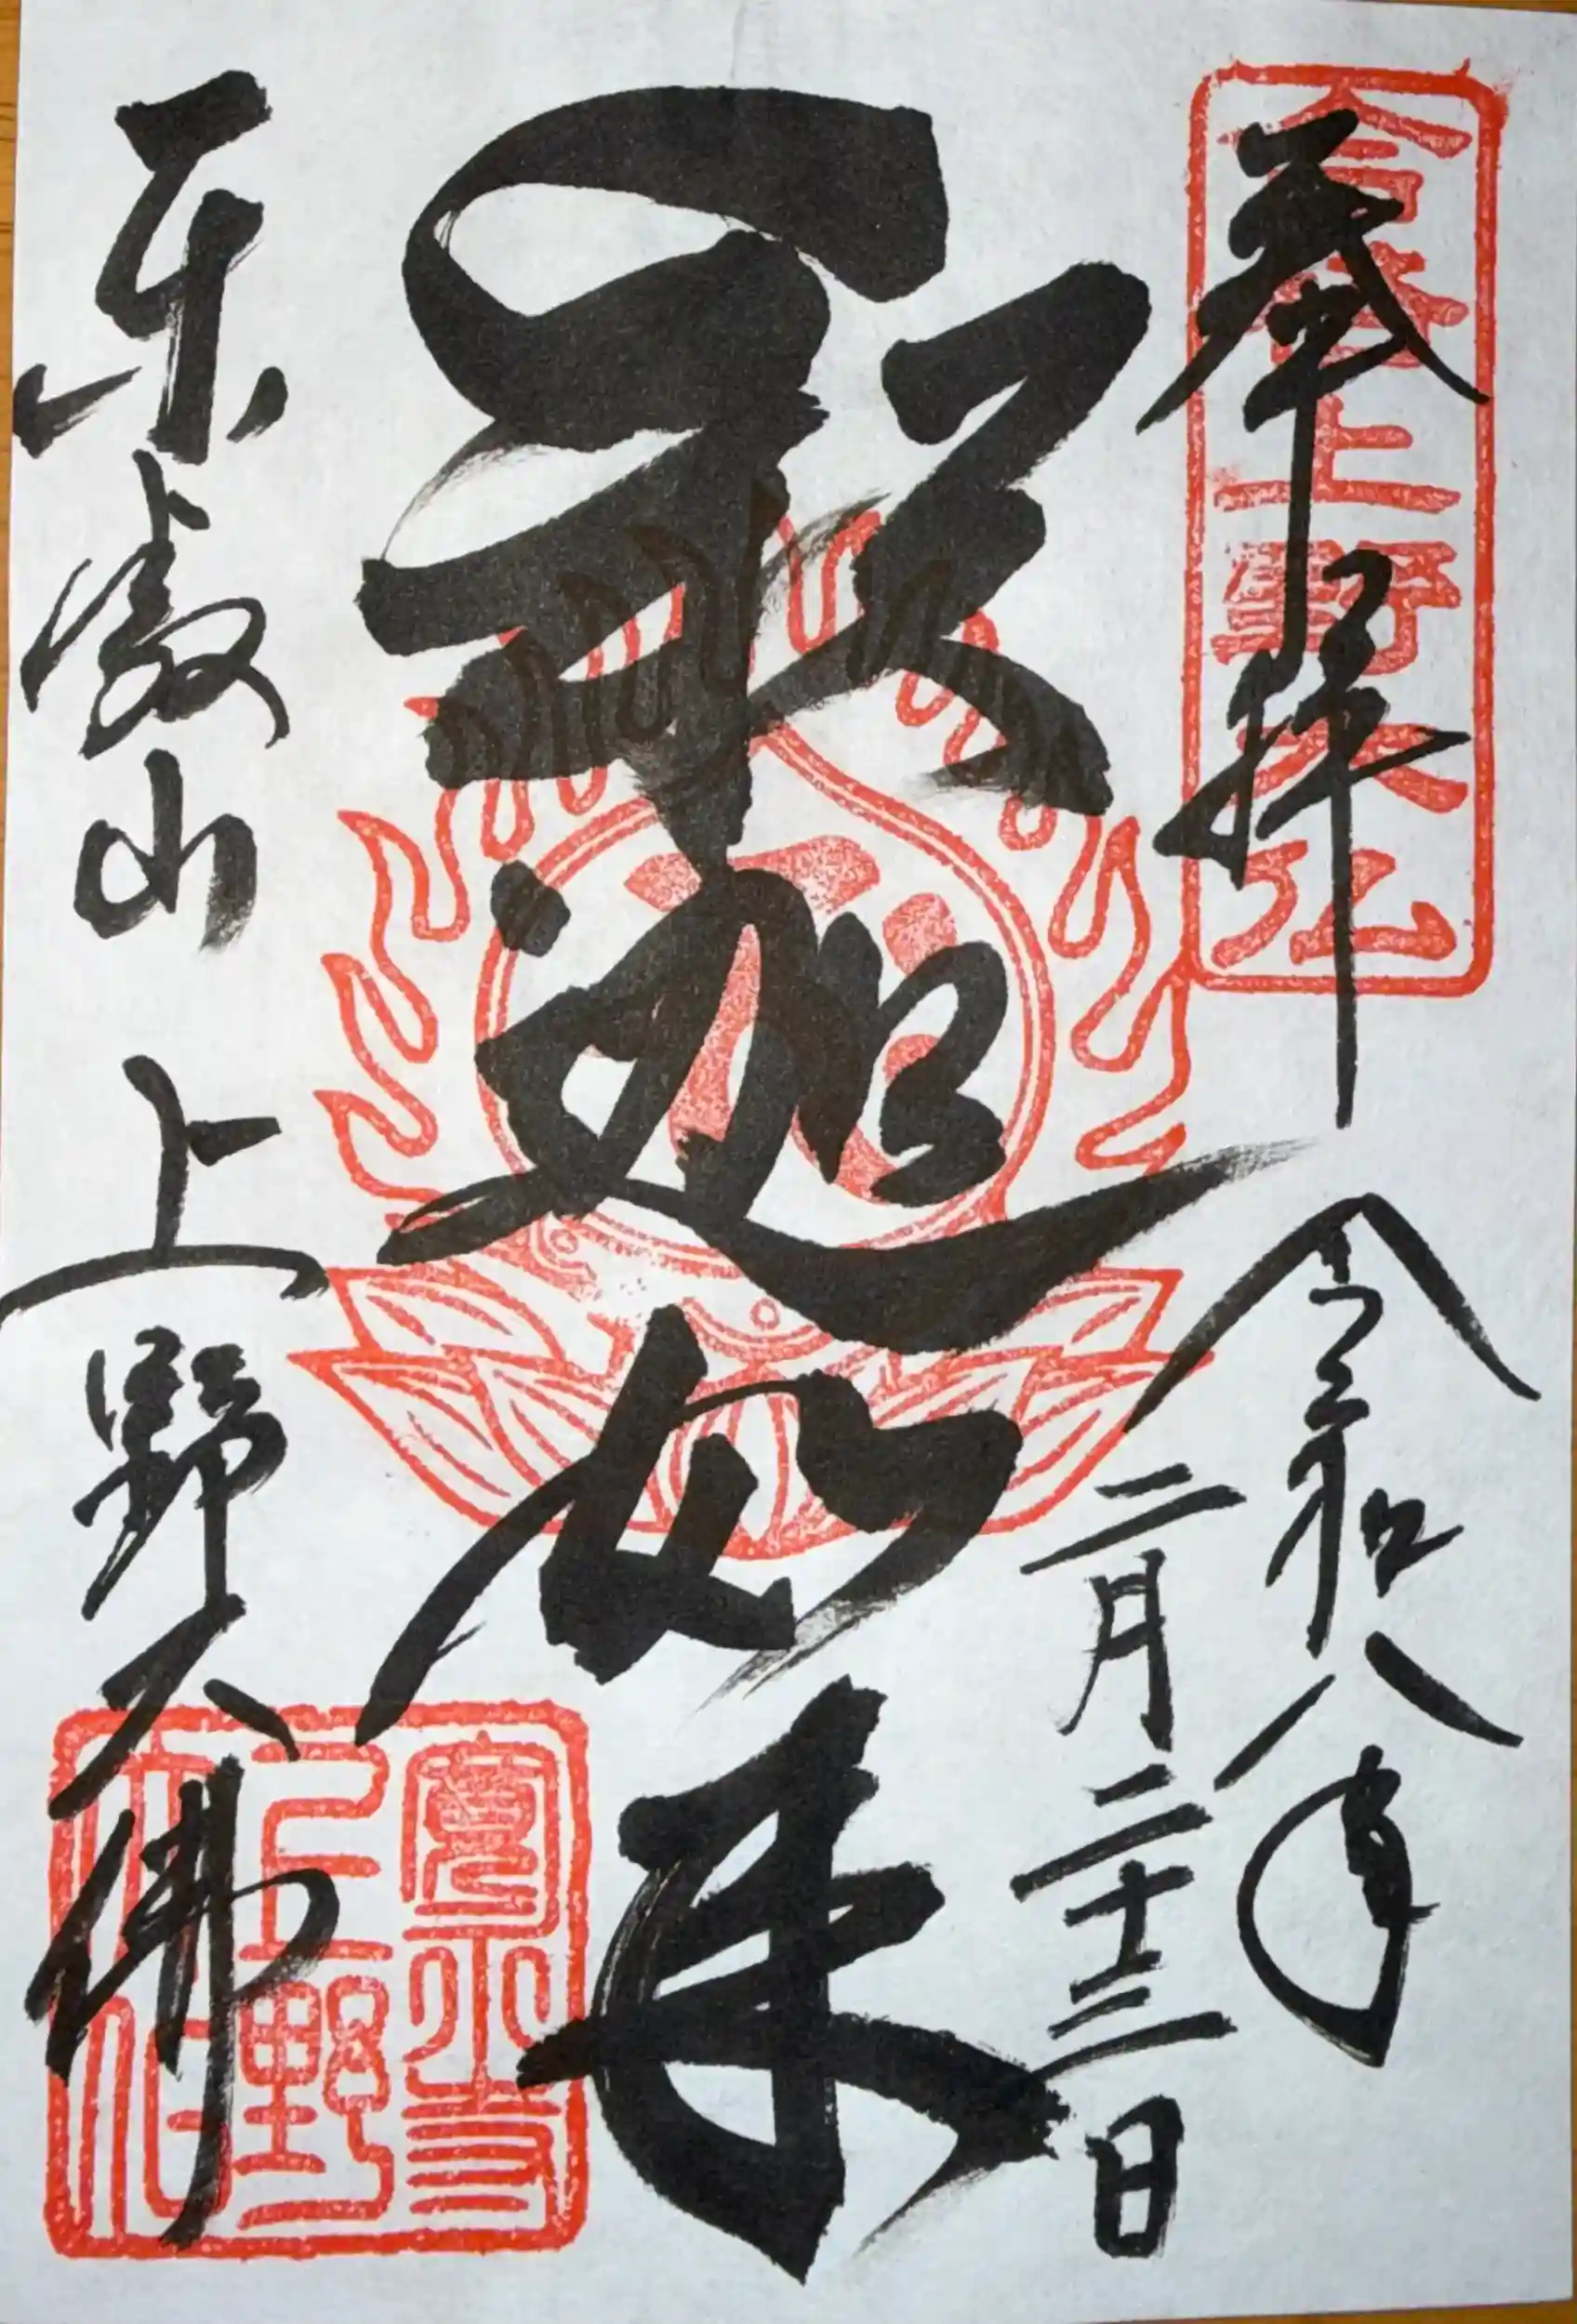 合格上野大仏
奉拝
令和八年
二月二十三日
釈迦如来
東叡山 上野大佛
寛永寺
上野
大佛